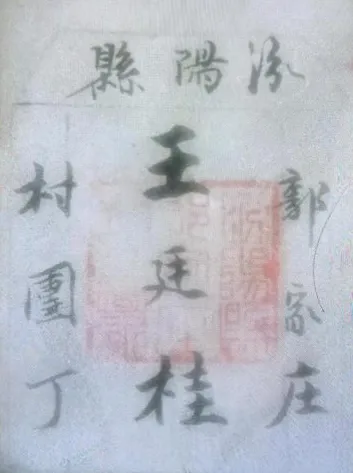 汾陽縣
郭家庄
王廷桂
村團丁